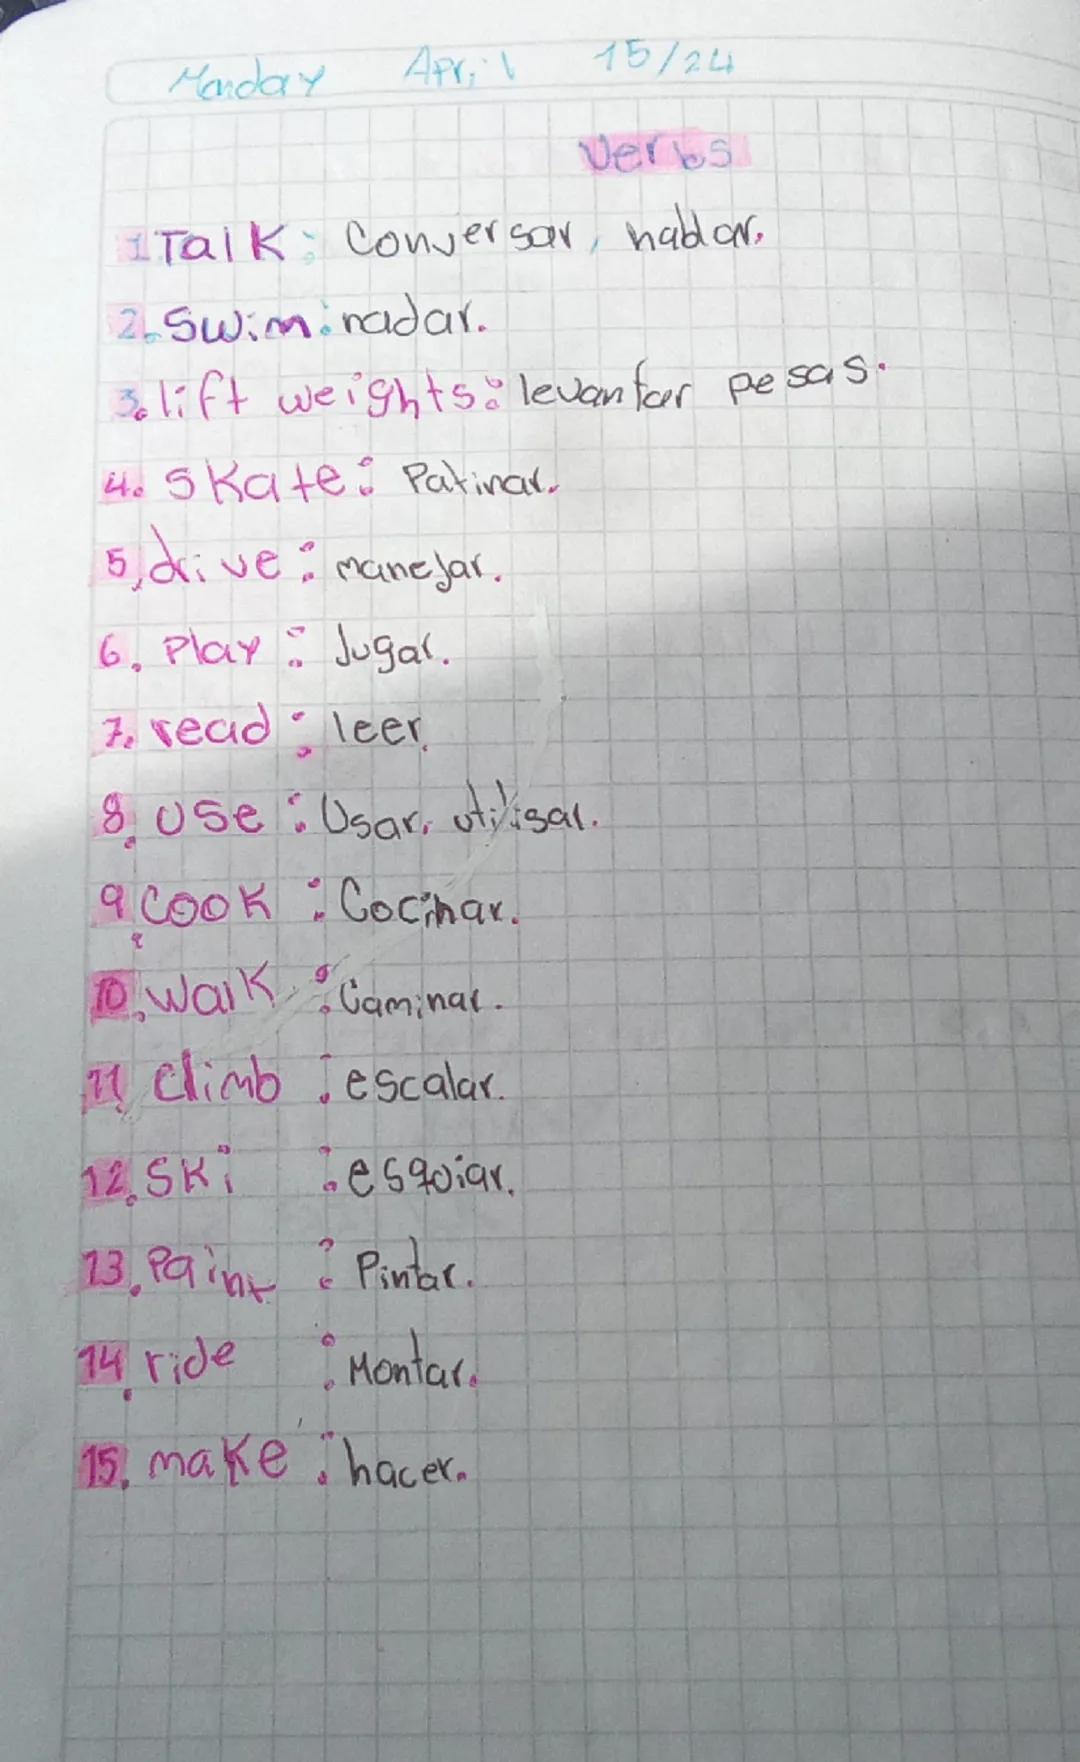 Monday April 15/24
Verbs
1 Talk: Conversar, hablar.
2. Swim: nadar.
3. lift weights: levantar pesas.
4. Skate: Patinar.
5. drive: manejar.
6. Play: Jugar.
7. read: leer.
8. Use: Usar, utilisar.
9. Cook: Cocinar.
10. Walk: Caminar.
11. Climb: escalar.
12. Ski: esquiar.
13. Paint: Pintar.
14. ride: Montar.
15. make: hacer.